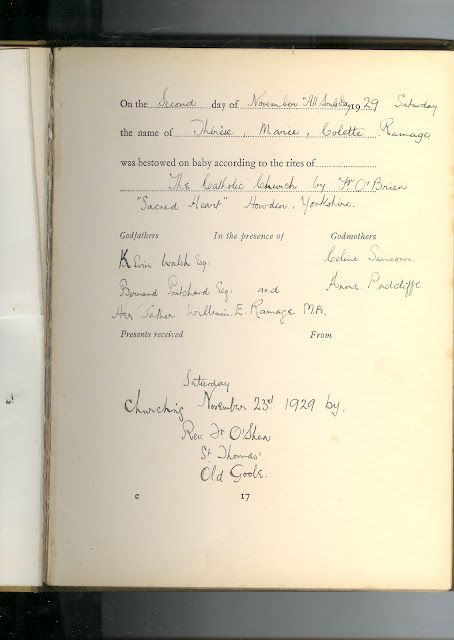 On the Second day of November "All Souls Day 1929 Saturday
the name of Thérèse, Marie, Colette Ramage
was bestowed on baby according to the rites of
The Catholic Church by Fr O'Brien
"Sacred Heart" Howden. Yorkshire.
Godfathers In the presence of Godmothers
Kevin Walsh Esq: Celine Sansom.
Bernard Pritchard Esq: and Anne Radcliffe
Her Father William. E. Ramage M.A.
Presents received From
Saturday
Churching November 23rd 1929 by.
Rev. Fr O'Shea
St Thomas'
Old Goole.
c 17